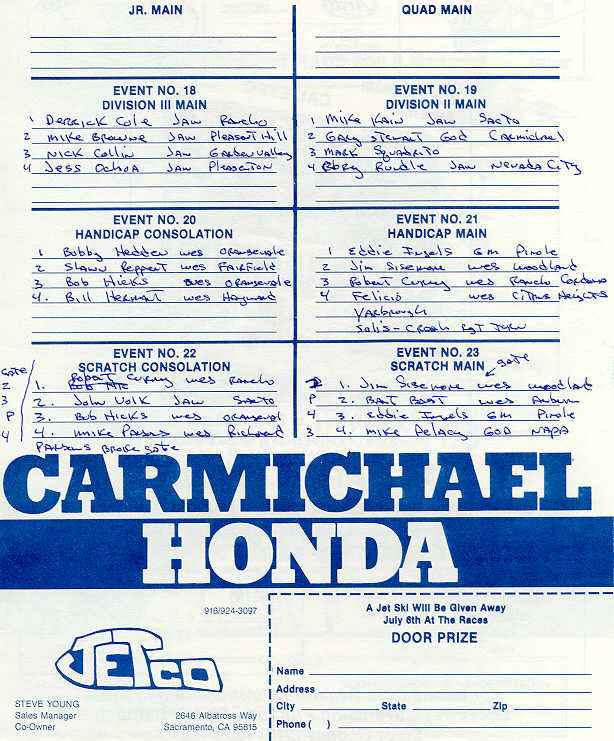 JR. MAIN
QUAD MAIN
EVENT NO. 18
DIVISION III MAIN
1 Derrick Cole Jaw Rancho
2 Mike Browne Jaw Pleasant Hill
3 Nick Collin Jaw Garden Valley
4 Jess Ochoa Jaw Pleasenton
EVENT NO. 19
DIVISION II MAIN
1 Mike Kain Jaw Sacto
2 Gary Stewart God Carmichael
3 Mark Squadrito
4 Rory Rundle Jaw Nevada City
EVENT NO. 20
HANDICAP CONSOLATION
1 Bobby Hedden wes Orangevale
2 Shawn Reppert wes Fairfield
3 Bob Hicks wes Orangevale
4. Bill Hermant wes Hayward
EVENT NO. 21
HANDICAP MAIN
1 Eddie Ingels Gm Pinole
2 Jim Sisemore wes Woodland
3 Robert Curry wes Rancho Cordova
4 Felicio wes Citrus Heights
Yarbrough
Solis - Crash Rgt Turn
EVENT NO. 22
SCRATCH CONSOLATION
Gate
2 1. Robert Curry wes Rancho
3 2. John Volk Jaw Sacto
P 3. Bob Hicks wes Orangeval
4 4. Mike Parsons wes Richmond
Parsons Broke gate
EVENT NO. 23
SCRATCH MAIN
gate
2 1. Jim Sisemore wes Woodland
P 2. Bart Bast wes Auburn
4 3. Eddie Ingels Gm Pinole
3 4. Mike Pelacy GOD Napa
CARMICHAEL
HONDA
916/924-3097
JETCO
STEVE YOUNG
Sales Manager
Co-Owner
2646 Albatross Way
Sacramento, CA 95815
A Jet Ski Will Be Given Away
July 6th At the Races
DOOR PRIZE
Name
Address
City State Zip
Phone ( )